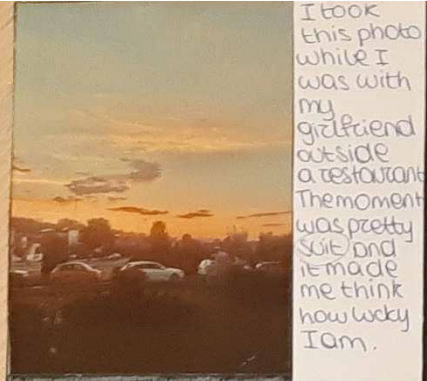 I took
this photo
while I
was with
my
girlfriend
outside
a restaurant
The moment
was pretty
suit and
it made
me think
how lucky
I am.